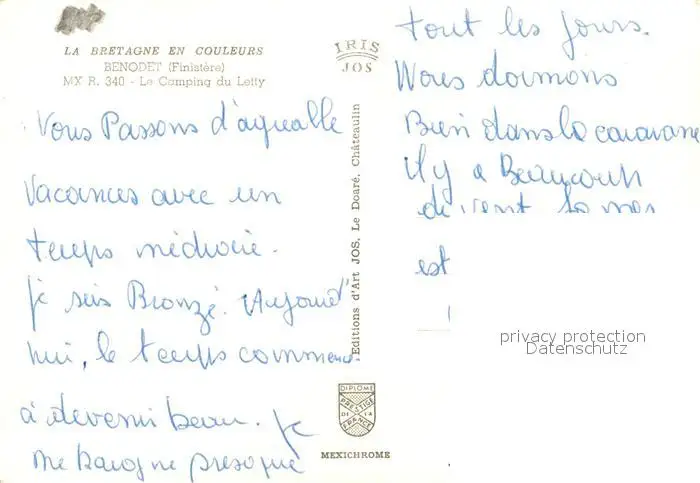 LA BRETAGNE EN COULEURS
BENODET (Finistère)
MX R. 340 - Le Camping du Letty
Vous Passons d'agreable
vacances avec un
temps médiocre.
je suis Bronzé. Aujourd'
hui, le temps commence
à devenir beau. Je
me baigne presque
IRIS
JOS
Editions d'Art JOS, Le Doaré, Châteaulin
DIPLOME
PRESTIGE
DE LA
FRANCE
MEXICHROME
tout les jours.
Nous dormons
Bien dans la caravane
Il y a Beaucoup
de vent la mer
est
privacy protection
Datenschutz